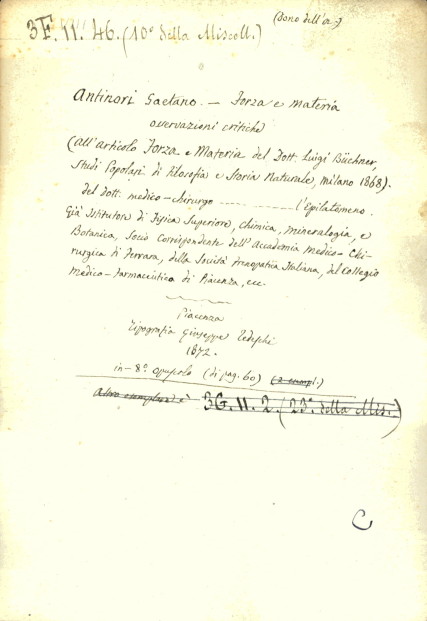 (Dono dell'au.)
3F. 11. 46. (10ª della Miscell.)
Antinori Gaetano. — Forza e Materia
osservazioni critiche
(all'articolo Forza e Materia del Dott. Luigi Büchner,
Studi Popolari di Filosofia e Storia Naturale, Milano 1868).
del dott. medico-chirurgo l'Epilatomeno.
Già Istitutore di Fisica Superiore, Chimica, Mineralogia, e
Botanica, Socio Corrispondente dell'Accademia Medico-Chi-
rurgica di Ferrara, della Società Frenopatica Italiana, del Collegio
Medico-Farmaceutico di Piacenza, ecc.
Piacenza
Tipografia Giuseppe Tedeschi
1872.
in-8º opuscolo (di pag. 60) (2 esempl.)
Altro esemplare è 3G. 11. 2. (23ª della Mis.)
C